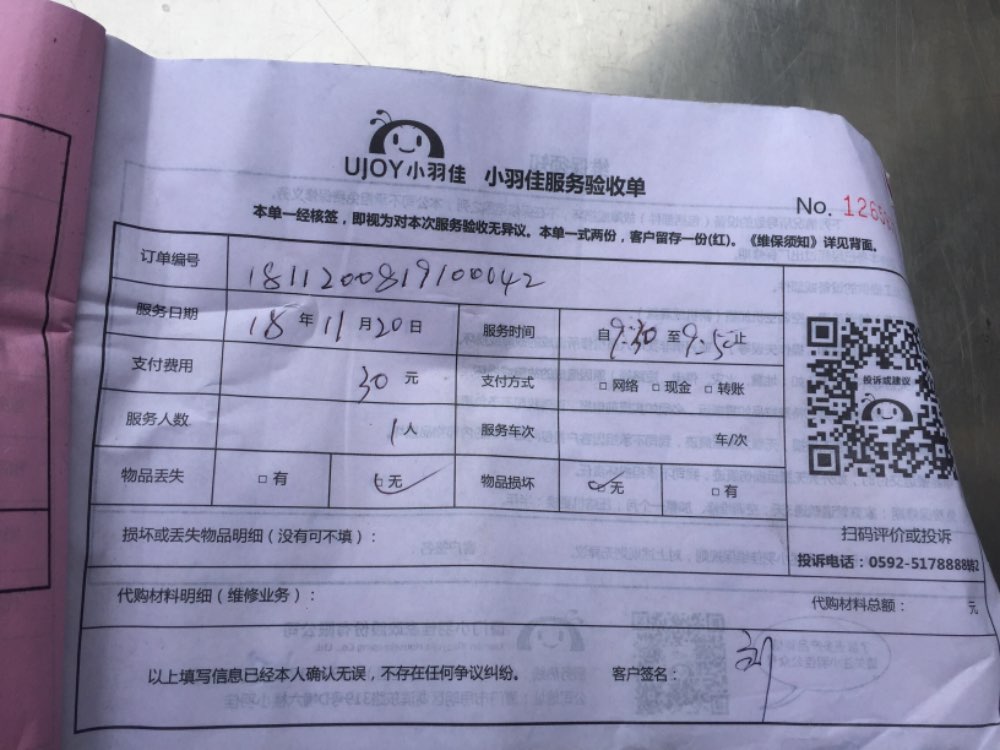 UJOY小羽佳 小羽佳服务验收单
No. 126
本单一经核签，即视为对本次服务验收无异议。本单一式两份，客户留存一份(红)。《维保须知》详见背面。
订单编号 1811200819100042
服务日期 18 年 11 月 20 日 服务时间 自 9:30 至 9:50 止
支付费用 30 元 支付方式 □ 网络 □ 现金 □ 转账
投诉或建议
服务人数 1 人 服务车次 车/次
物品丢失 □ 有 □ 无 物品损坏 □ 无 □ 有
扫码评价或投诉
投诉电话：0592-5178888转2
损坏或丢失物品明细（没有可不填）：
代购材料明细（维修业务）： 代购材料总额： 元
以上填写信息已经本人确认无误，不存在任何争议纠纷。 客户签名：